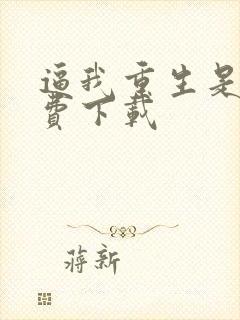 逼我重生是
费下载
蒋新